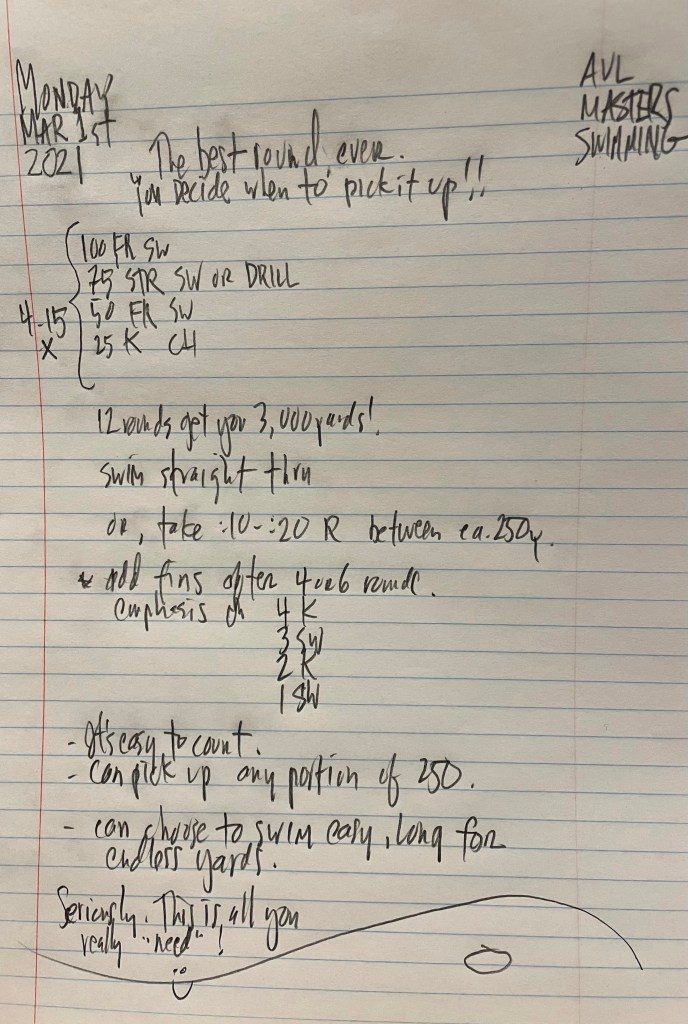 MONDAY
MAR 1st
2021
AVL
MASTERS
SWIMMING
The best round ever.
You decide when to pick it up!!
100 FR SW
75 STR SW OR DRILL
4-15 50 FR SW
X 25 K CH
12 rounds get you 3,000 yards!
swim straight thru
or, take :10-:20 R between ea. 250y.
* add fins after 4 or 6 rounds.
emphasis on 4 K
3 SW
2 K
1 SW
- It's easy to count.
- can pick up any portion of 250.
- can choose to swim easy, long for
endless yards.
Seriously. This is all you
really "need"!